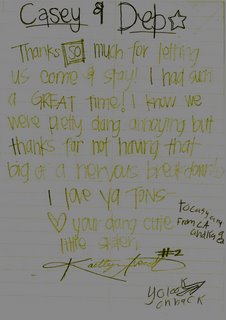 Casey & Deb
Thanks so much for letting
us come & stay! I had such
a GREAT time! I know we
were pretty dang annoying but
thanks for not having that
big of a nervous breakdown!
I love ya tons
your dang cute
little sister,
#2
from CA
on back